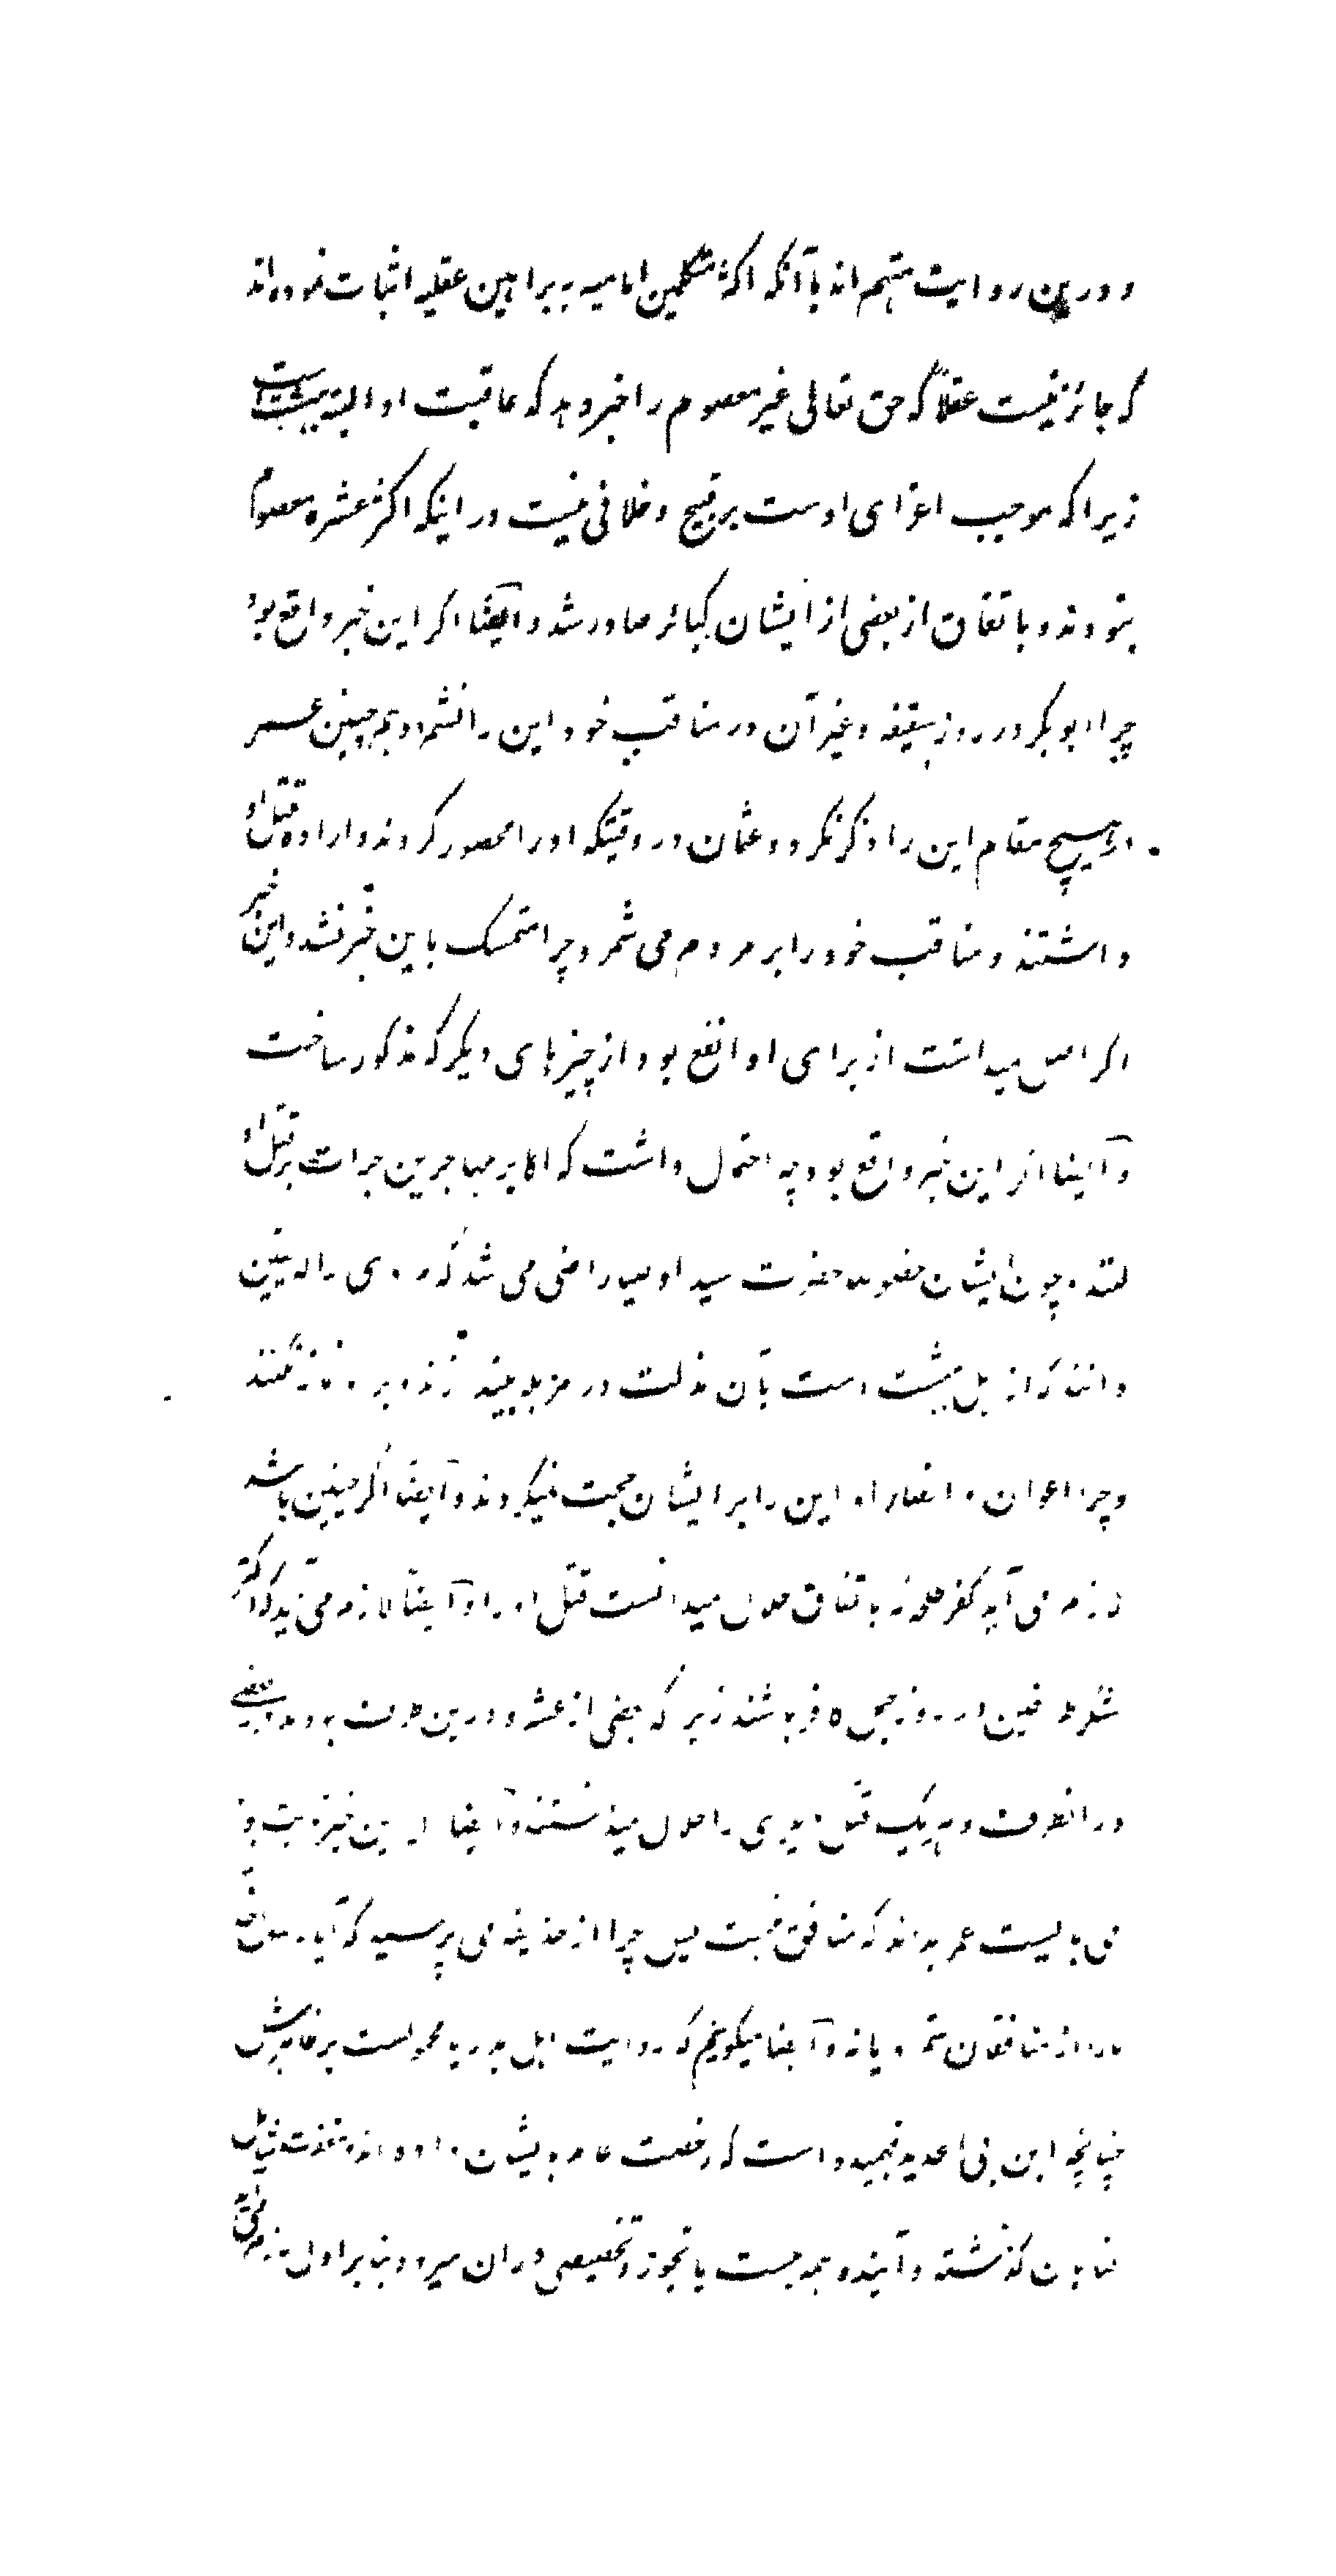 و درین روایت متهم اند با آنکه اکثر متکلمین امامیه به براهین عقلیه اثبات نموده اند
که جائز نیست عقلاً که حق تعالی غیر معصوم را خبر دهد که عاقبت او البته بهشت است
زیرا که موجب اغرای اوست بر قبیح و خلافی نیست در اینکه اکثر عشره معصوم
نبودند و باتفاق از بعضی از ایشان کبائر صادر شد و ایضا اگر این خبر واقع بود
چرا ابوبکر در روز سقیفه و غیر آن در مناقب خود این را نشمرد و همچنین عمر
در هیچ مقام این را ذکر نکرد و عثمان در وقتیکه او را محصور کردند و اراده قتل او
داشتند و مناقب خود را بر مردم می شمرد چرا متمسک باین خبر نشد و این خبر
اگر اصل میداشت از برای او انفع بود از چیزهای دیگر که مذکور ساخت
و ایضا اگر این خبر واقع بود چه احتمال داشت که اکابر مهاجرین جرات بر قتل او
کنند و چون ایشان خصوصا حضرت سید اوصیا راضی می شد که مردی را که یقین
دانند که از اهل بهشت است بآن مذلت در مزبله بیندازند و بر او نماز نکنند
و چرا اعوان و انصار او این را بر ایشان حجت نمیکردند و ایضا اگر چنین باشد
لازم می آید کفر طلحه که باتفاق حلال میدانست قتل او را و ایضا لازم می آید که اکثر
طرفین در روز جمل کافر باشند زیرا که بعضی از عشره درین طرف بودند و بعضی
در انطرف و هر یک قتل دیگری را حلال میدانستند و ایضا اگر این خبر ثابت بود
می بایست عمر بداند که منافق نیست پس چرا از حذیفه می پرسید که آیا رسول خدا
مرا از منافقان شمرد یا نه و ایضا میگوئیم که روایت اهل بدر یا محمولست بر ظاهرش
چنانچه ابن ابی الحدید فهمیده است که رخصت عام بایشان داده اند
گناهان گذشته و آینده همه هست یا تجوز و تخصیصی در ان میرود بنابر اول لازم